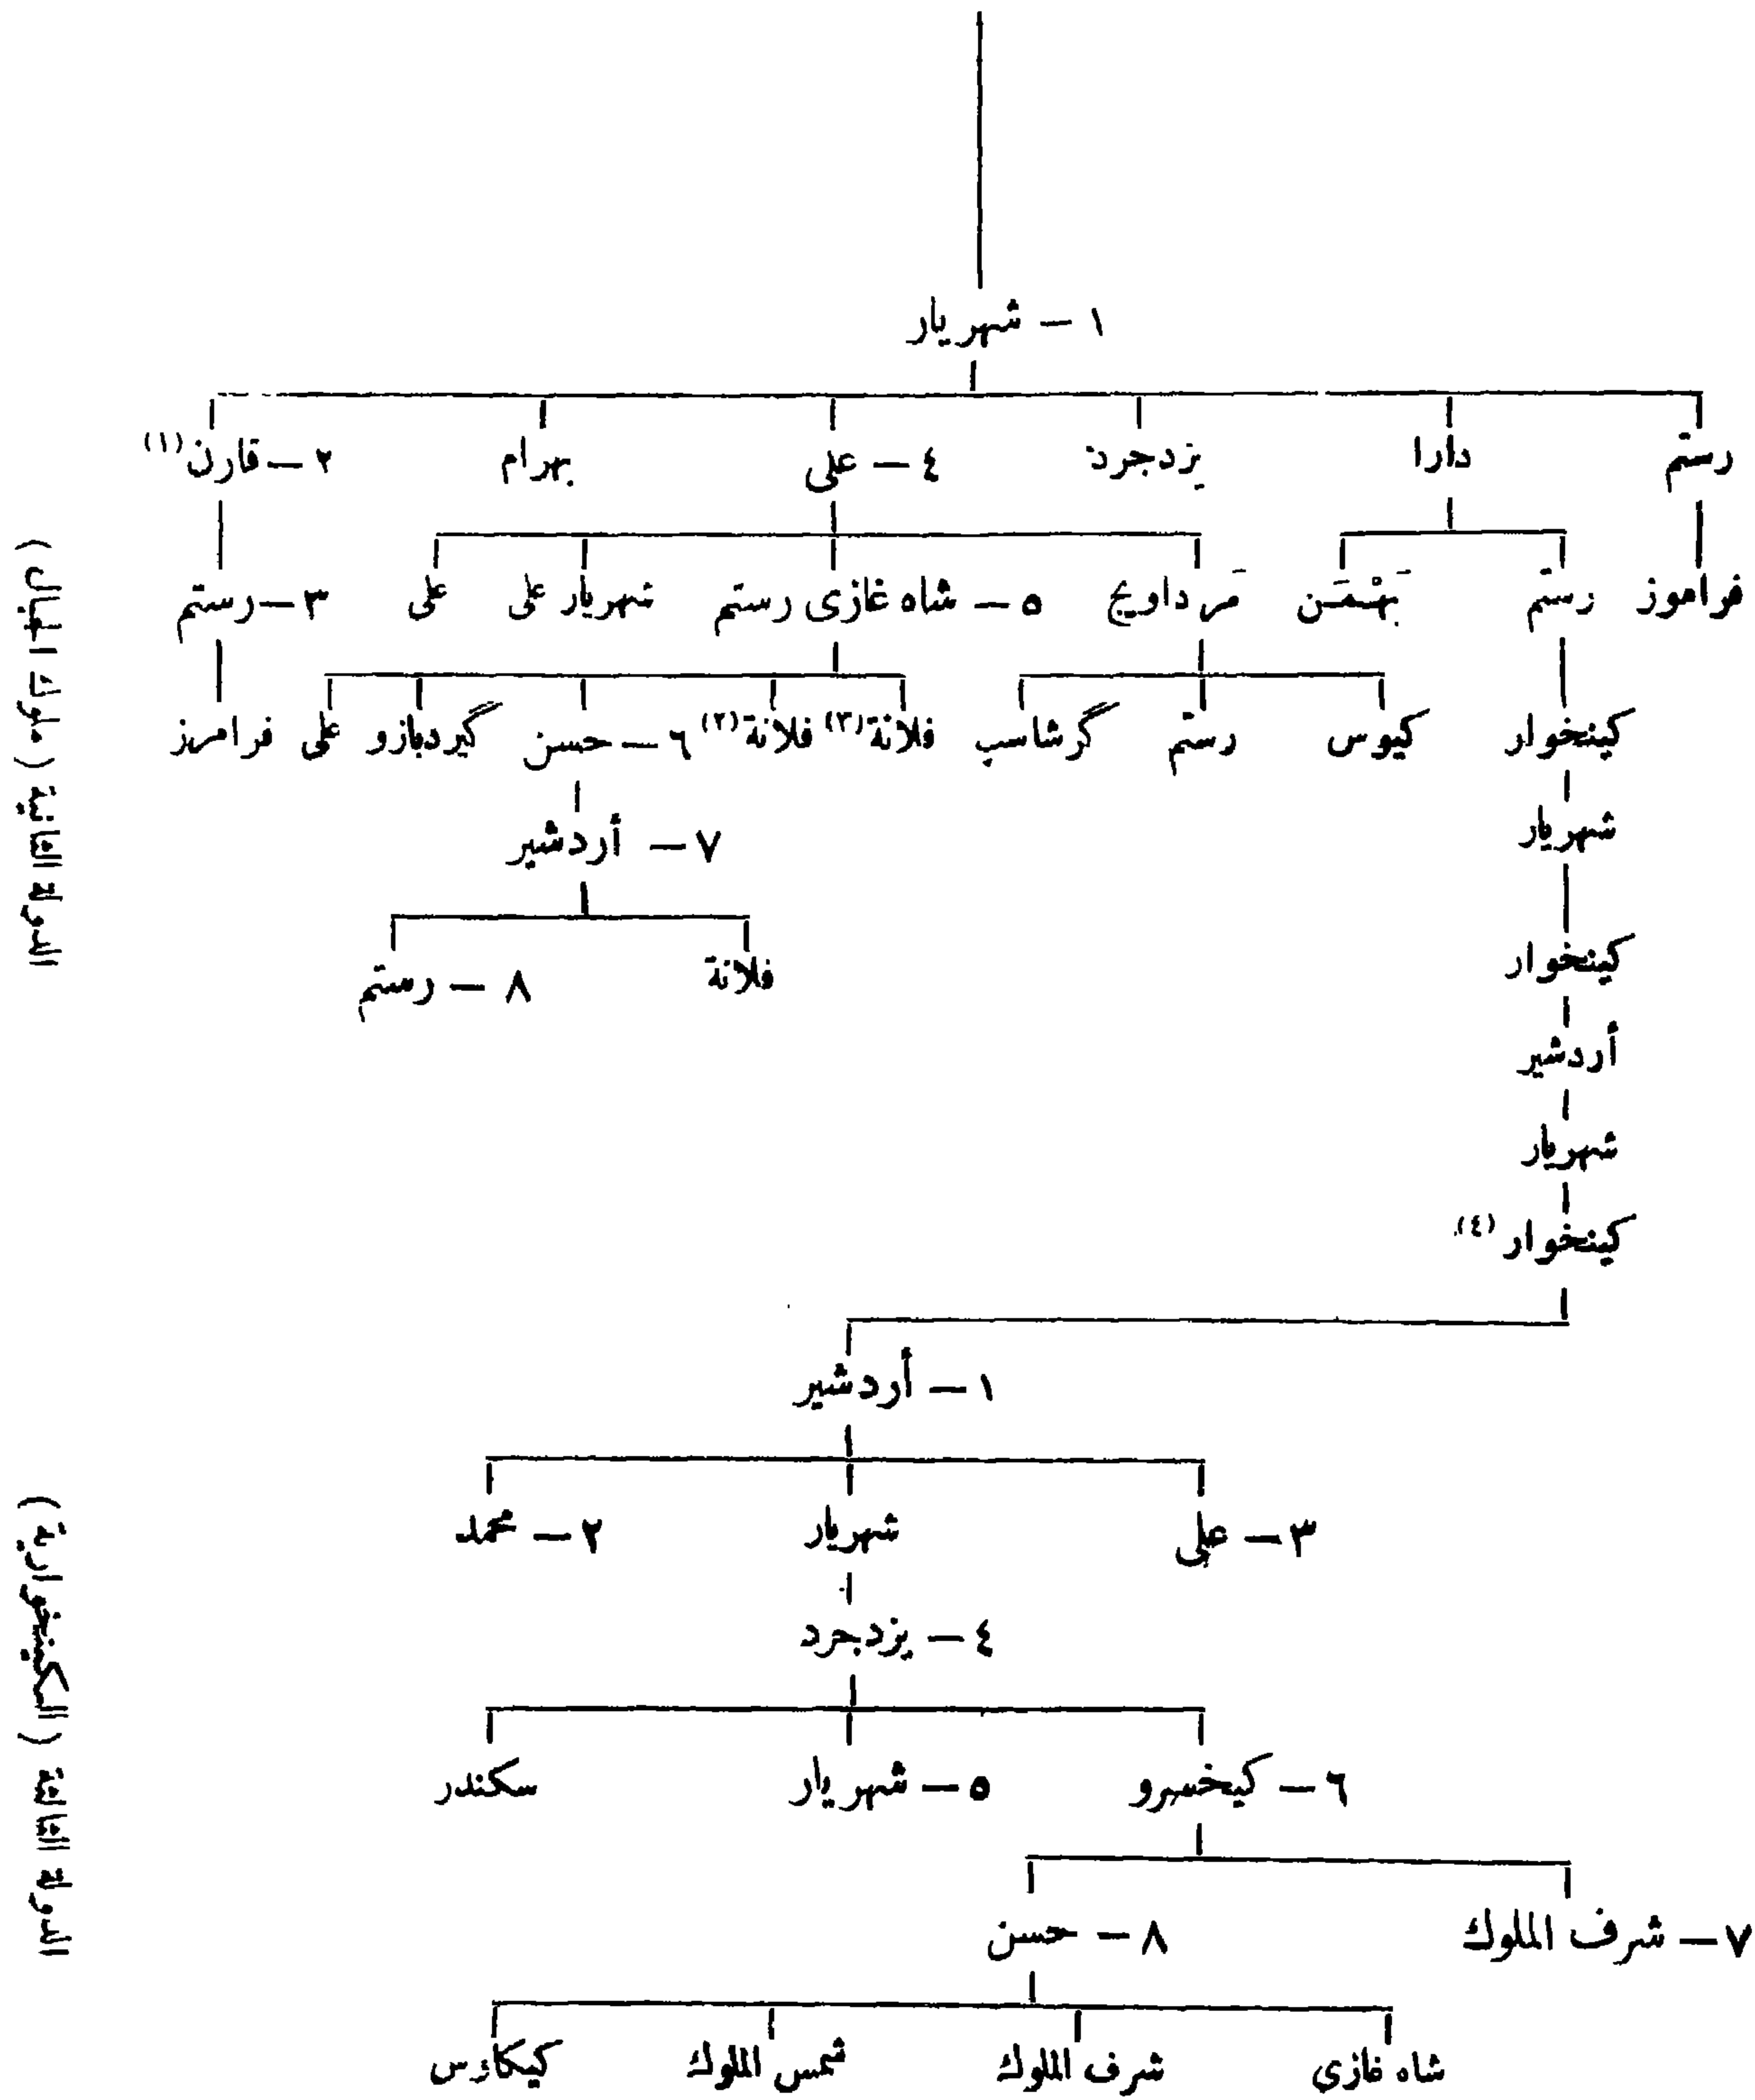 ١ – شهريار
رستم دارا يزدجرد ٤ – على بهرام ٢ – قارن (١)
فراموز رستم بَهْمَن مَرداويج ٥ – شاه غازى رستم شهريار على على ٣ – رستم
كينخوار كيوس رستم گرشاسب فلانة (٣) فلانة (٢) ٦ – حسن گيردبازو على فرامرز
شهريار ٧ – أردشير
كينخوار فلانة ٨ – رستم
أردشير
شهريار
كينخوار (٤)
١ – أردشير
٣ – على شهريار ٢ – محمد
٤ – يزدجرد
٦ – كيخسرو ٥ – شهريار سكندر
٧ – شرف الملوك ٨ – حسن
شاه غازي شرف الملوك شمس الملوك كيكاؤس
الدولة الثانية (ملوك الجبال)
الدولة الثالثة (الكينخوارية)